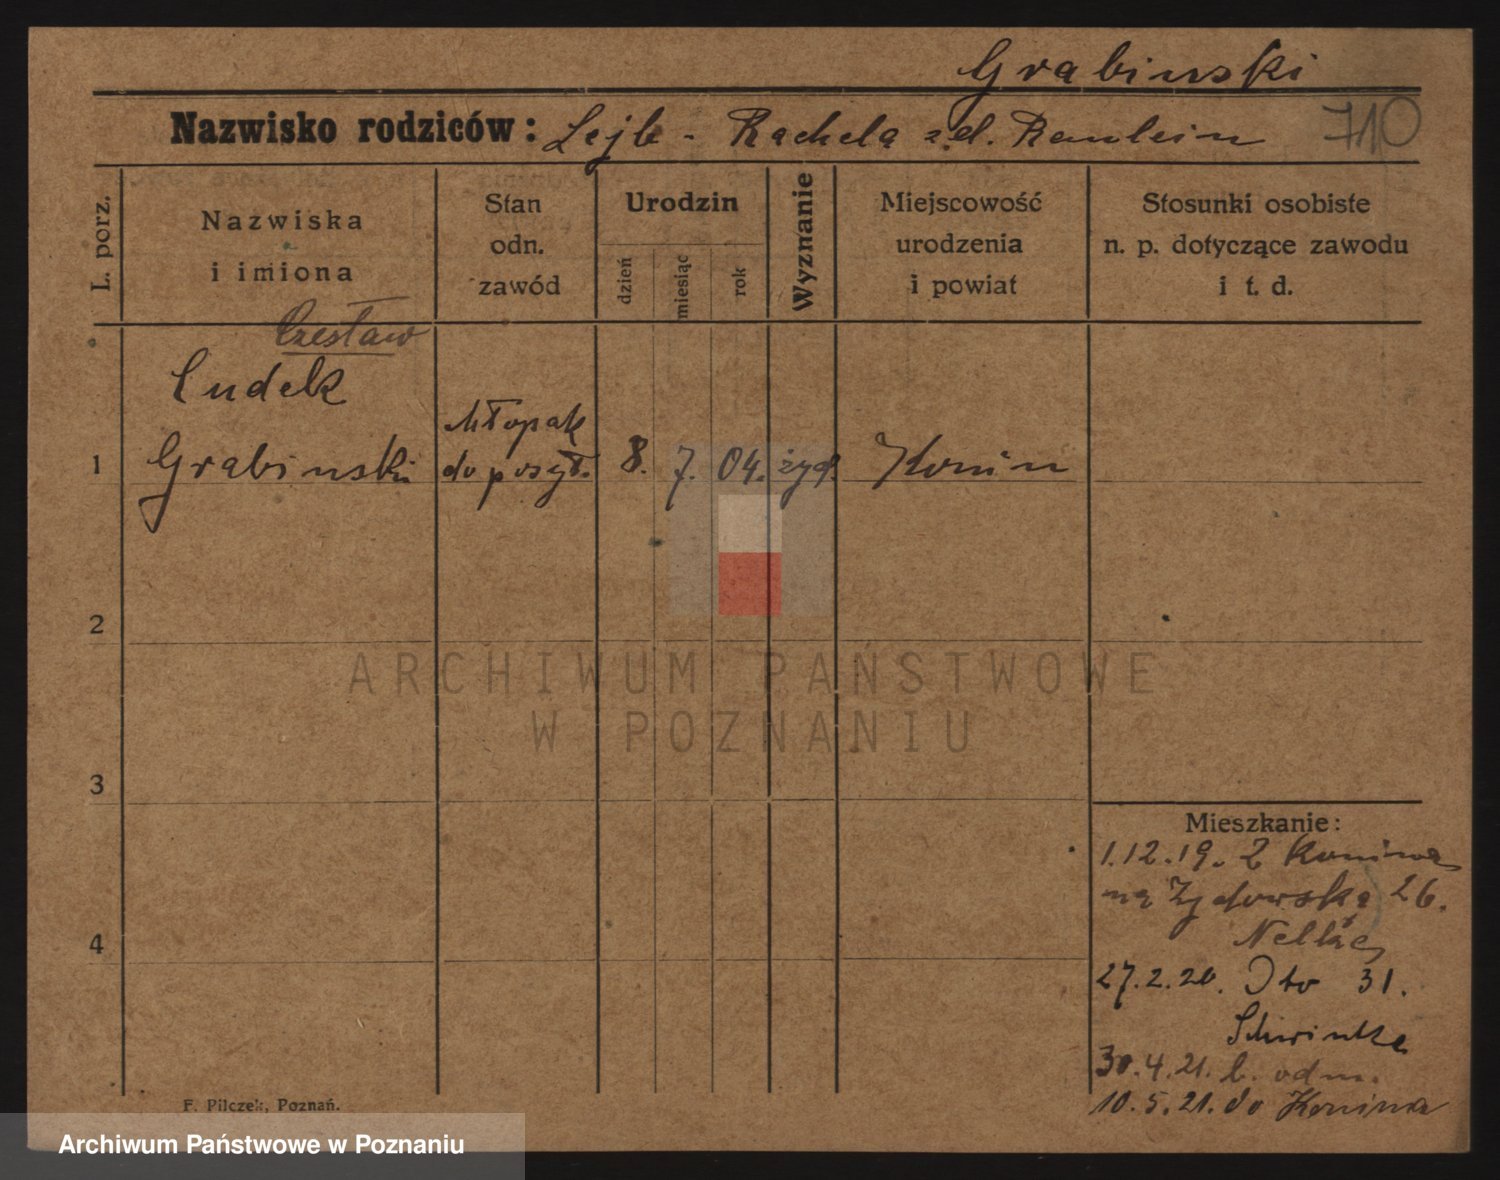 Grabinski
Nazwisko rodziców: Lejb - Rachela z d. 710
L. porz.
Nazwiska
i imiona
Stan
odn.
zawód
Urodzin
dzień
miesiąc
rok
Wyznanie
Miejscowość
urodzenia
i powiat
Stosunki osobiste
n. p. dotyczące zawodu
i t. d.
Czesław
Cudek
1 Grabinski
chłopak
do posył. 8. 7. 04. żyd. Konin
2
3
4
ARCHIWUM PAŃSTWOWE
W POZNANIU
Mieszkanie:
1.12.19. Z Konina
na Żydowską 26.
27.2.20. Dto 31.
30.4.21. b. odm.
10.5.21. do Konina
F. Pilczek, Poznań.
Archiwum Państwowe w Poznaniu